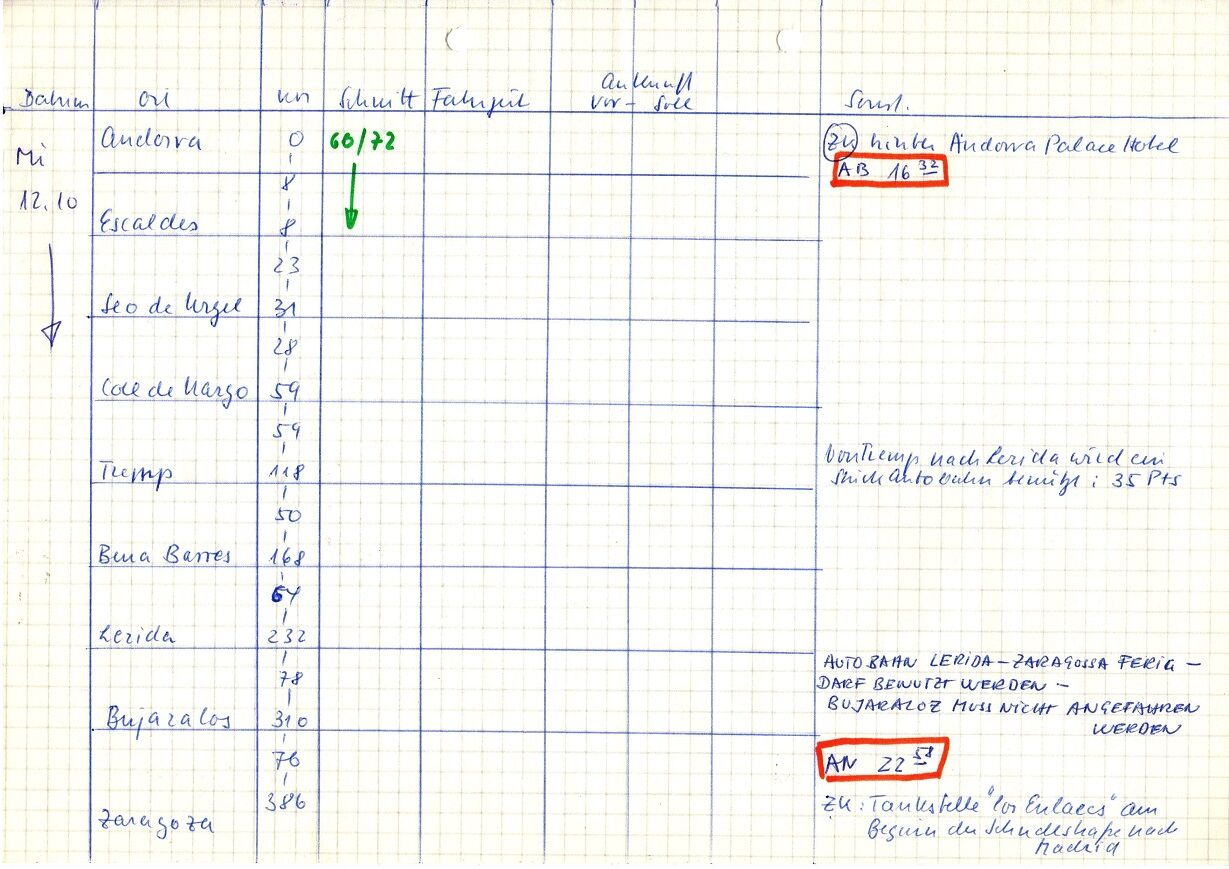 Ankunft
Datum Ort km Schnitt Fahrzeit vor- Soll Sonst.
Andorra 0 60/72 ZK hinter Andorra Palace Hotel
Mi AB 16 32
8
12.10
Escaldes 8
23
Seo de Urgel 31
28
Coll de Nargo 59
59
Von Tremp nach Lerida wird ein
Tremp 118
Stück Autobahn benützt : 35 Pts
50
Bena Barres 168
64
Lerida 232
AUTOBAHN LERIDA - ZARAGOSSA FERIG -
78
DARF BENUTZT WERDEN -
BUJARALOZ MUSS NICHT ANGEFAHREN
Bujaralos 310
WERDEN
76
AN 22 58
386
ZK: Tankstelle "los Enlaces" am
Zaragoza
Beginn der Schnellstraße nach
Madrid